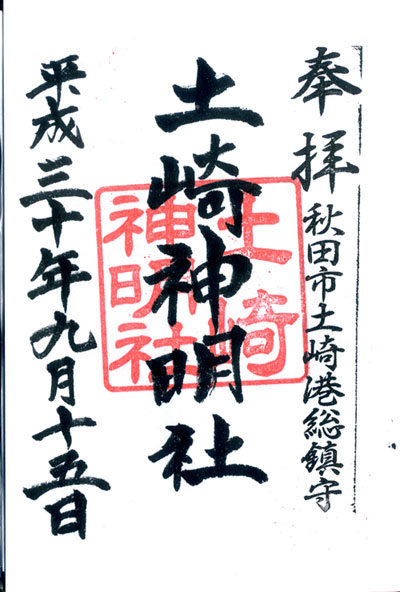 奉拝
秋田市土崎港総鎮守
土崎神明社
土崎
神明社
平成三十年九月十五日